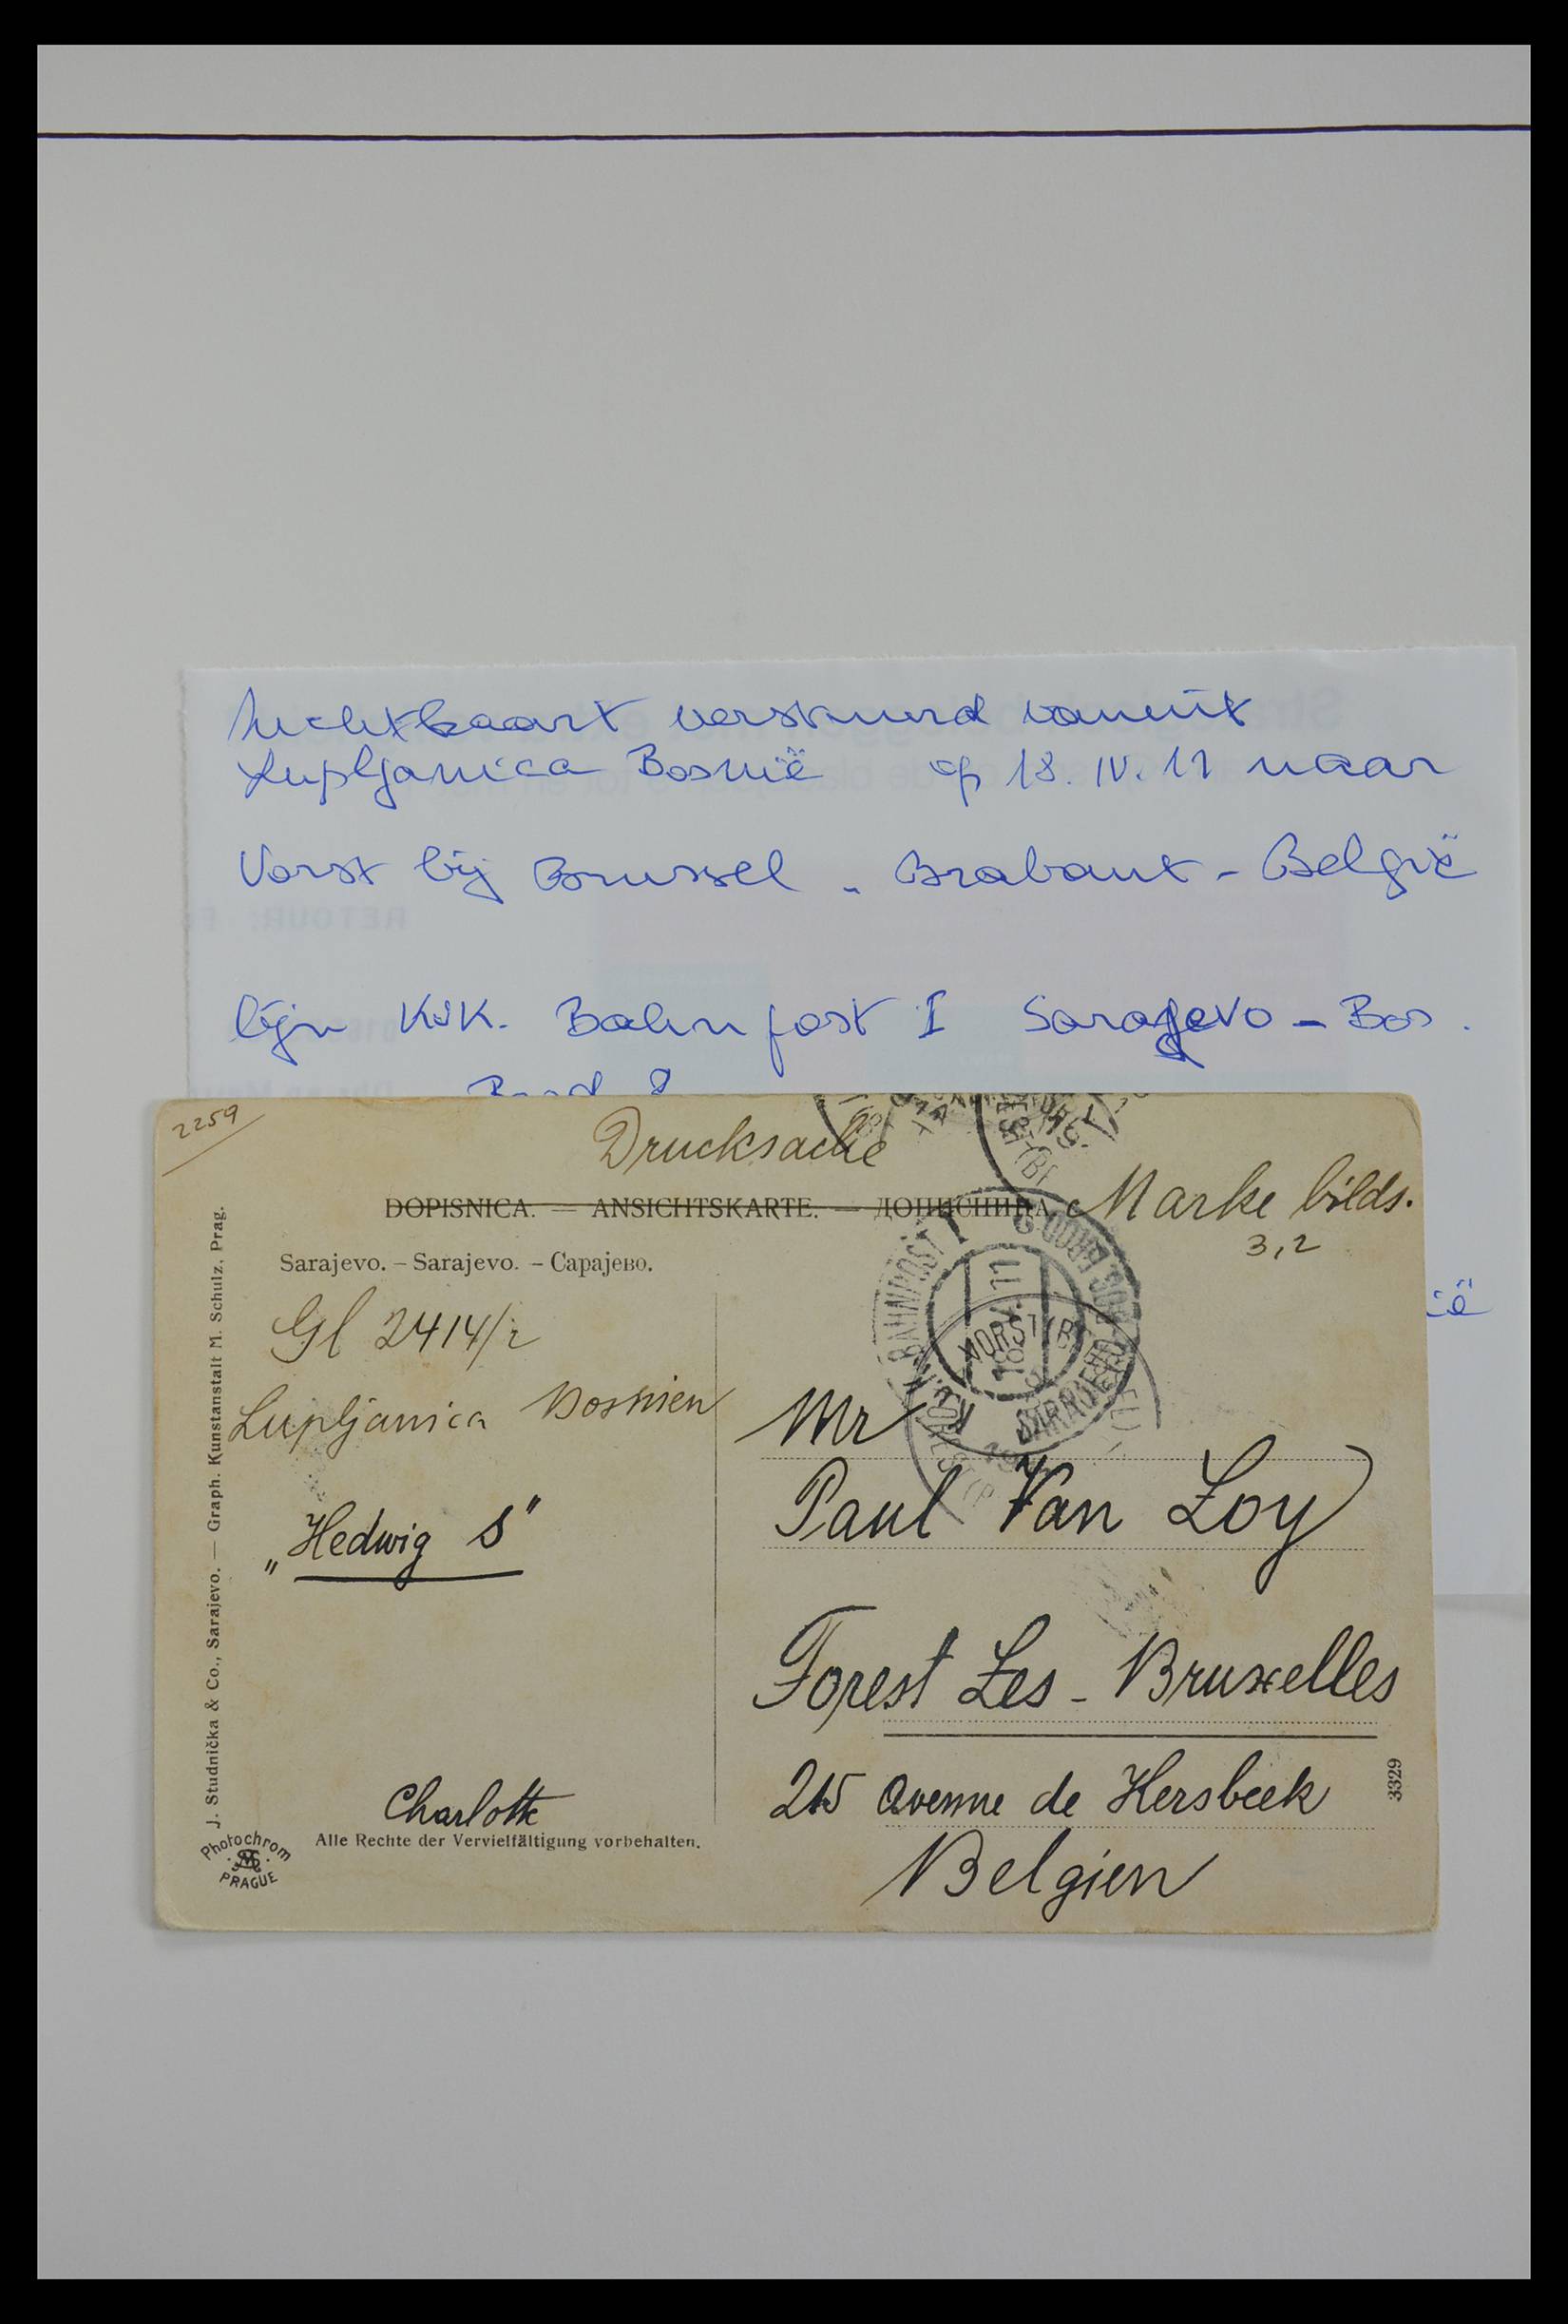 luchtkaart verstuurd vanuit
Lupljanica Bosnië op 18. IV. 11 naar
Vorst bij Brussel - Brabant - België
lijn K&K. Bahnpost I Sarajevo - Bos.
2259
Drucksache
DOPISNICA. — ANSICHTSKARTE. — ДОПИСНИЦА
Marke bilds.
3,2
Sarajevo. – Sarajevo. – Сарајево.
Gl 2414/2
Lupljanica Bosnien
„Hedwig S"
Charlotte
Alle Rechte der Vervielfältigung vorbehalten.
J. Studnička & Co., Sarajevo. — Graph. Kunstanstalt M. Schulz, Prag.
Photochrom
PRAGUE
BAHNPOST I
18 11
SARAJEVO
VORST (B
Mr
Paul Van Loy
Forest Les - Bruxelles
215 avenue de Kersbeek
Belgien
3329
RETOUR: